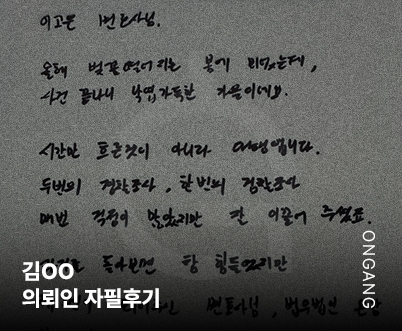 이고은 변호사님.
올해 벚꽃 떨어지는 봄에 뵈었는데,
사건 끝나니 낙엽가득한 가을이네요.
시간만 흐른것이 아니라 다행입니다.
두번의 경찰조사, 한번의 검찰조사
매번 걱정이 많았지만 잘 이끌어 주셨죠.
돌아보면 참 힘들었지만
변호사님, 법무법인 온강
김OO
의뢰인 자필후기
ONGANG